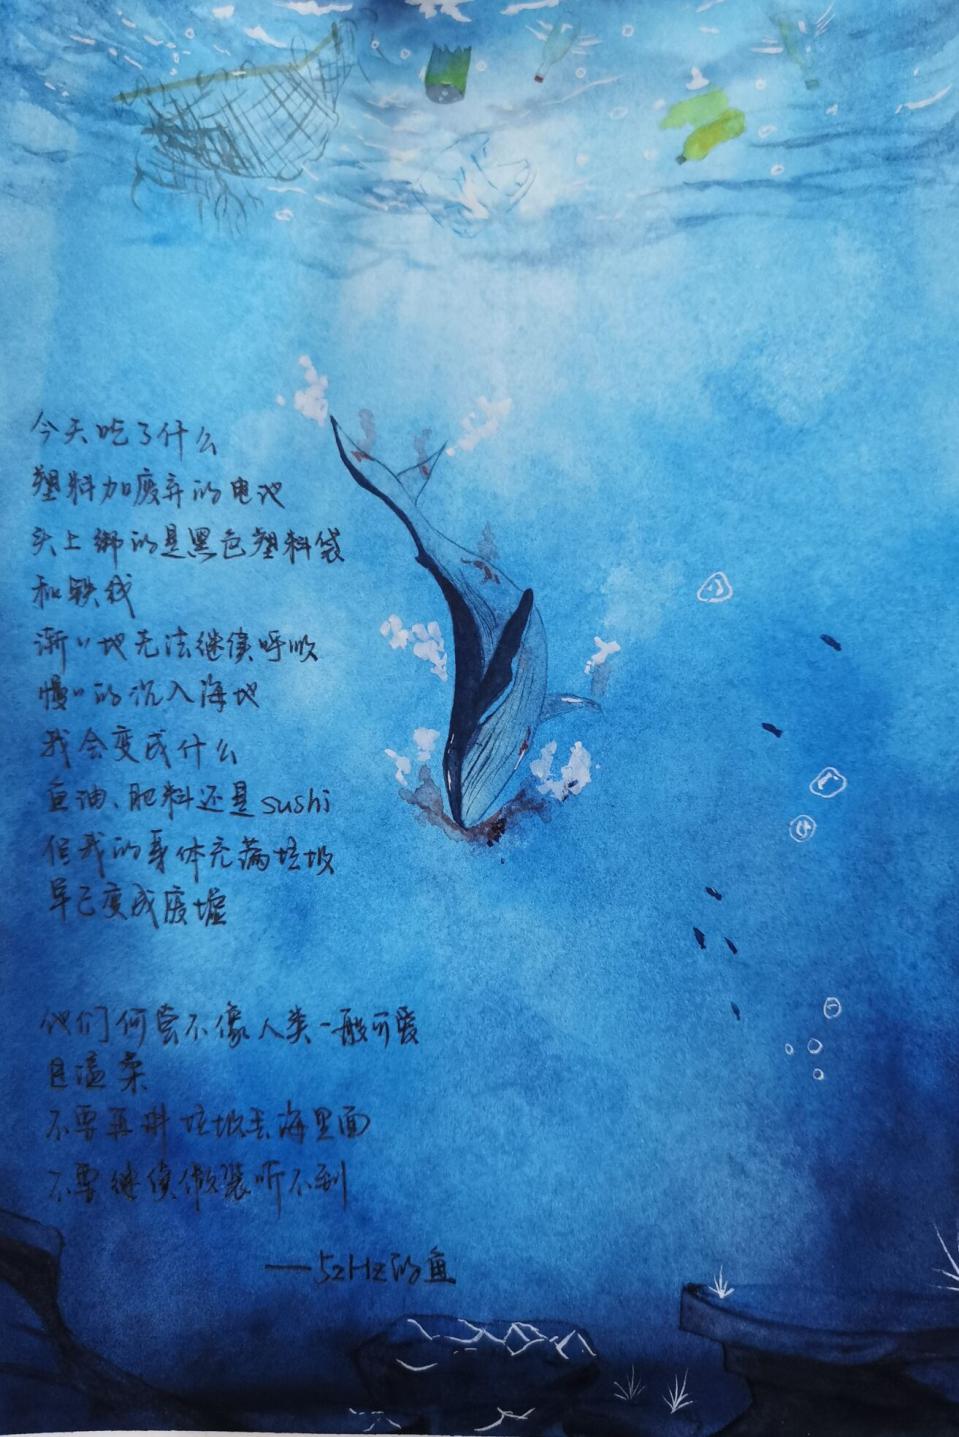 今天吃了什么
塑料加废弃的电池
头上绑的是黑色塑料袋
和铁线
渐〃地无法继续呼吸
慢〃的沉入海地
我会变成什么
鱼油、肥料还是sushi
但我的身体充满垃圾
早已变成废墟
他们何尝不像人类一般可爱
且温柔
不要再将垃圾丢海里面
不要继续假装听不到
——52Hz的鱼